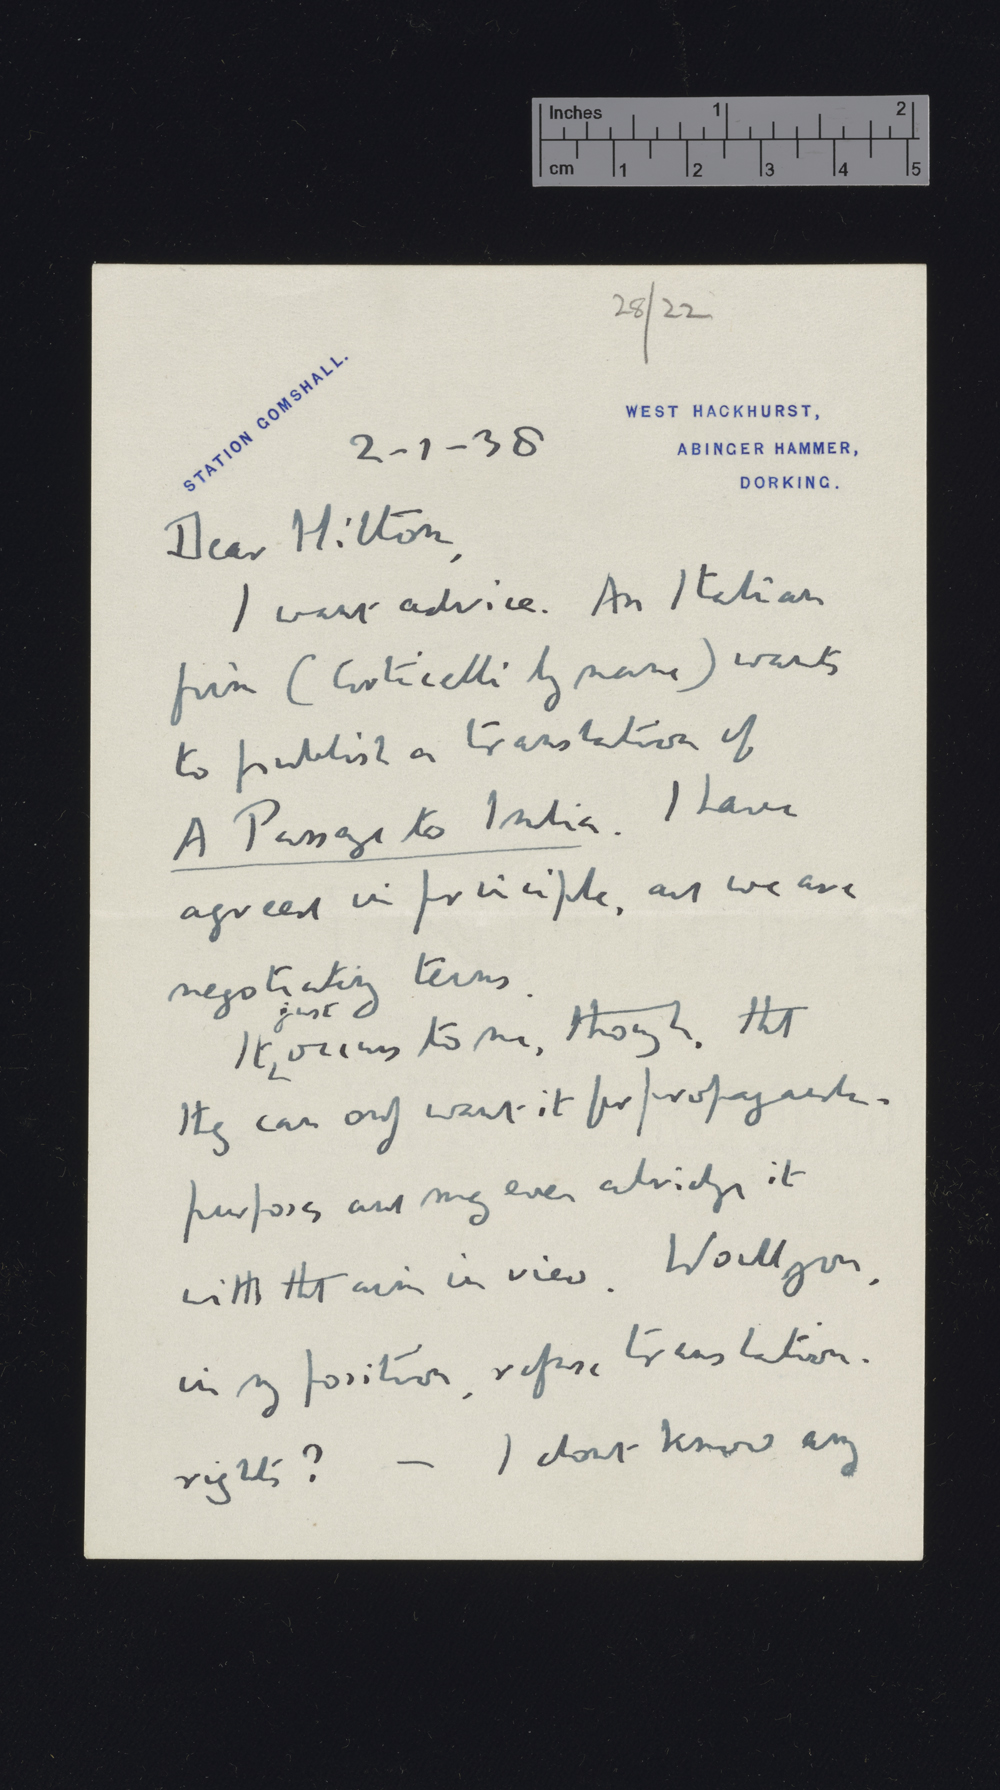 Inches 1 2
cm 1 2 3 4 5
28/22
STATION GOMSHALL.
WEST HACKHURST,
ABINGER HAMMER,
DORKING.
2-1-38
Dear Hilton,
I want advice. An Italian
firm (Corticelli by name) wants
to publish a translation of
A Passage to India. I have
agreed in principle, and we are
negotiating terms.
just
It occurs to me, though, tht
they can only want it for propaganda-
purposes and may even abridge it
with tht aim in view. Would you,
in my position, refuse translation-
rights? — I dont know any